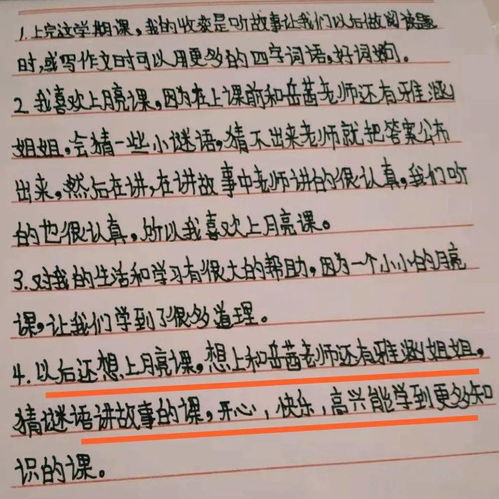 1.上完这学期课,我的收变是听故事让我们以后做阅读题
时,或写作文时可以用更多的四字词语,好词好句。
2.我喜欢上月亮课,因为在上课前和岳茜老师还有雅涵
姐姐,会猜一些小谜语,猜不出来老师就把答案公布
出来,然后在讲,在讲故事中老师讲的很认真,我们听
的也很认真,所以我喜欢上月亮课。
3.对我的生活和学习有很大的帮助,因为一个小小的月亮
课,让我们学到了很多道理。
4.以后还想上月亮课,想上和岳茜老师还有雅涵姐姐,
猜谜语讲故事的课,开心,快乐,高兴能学到更多知
识的课。